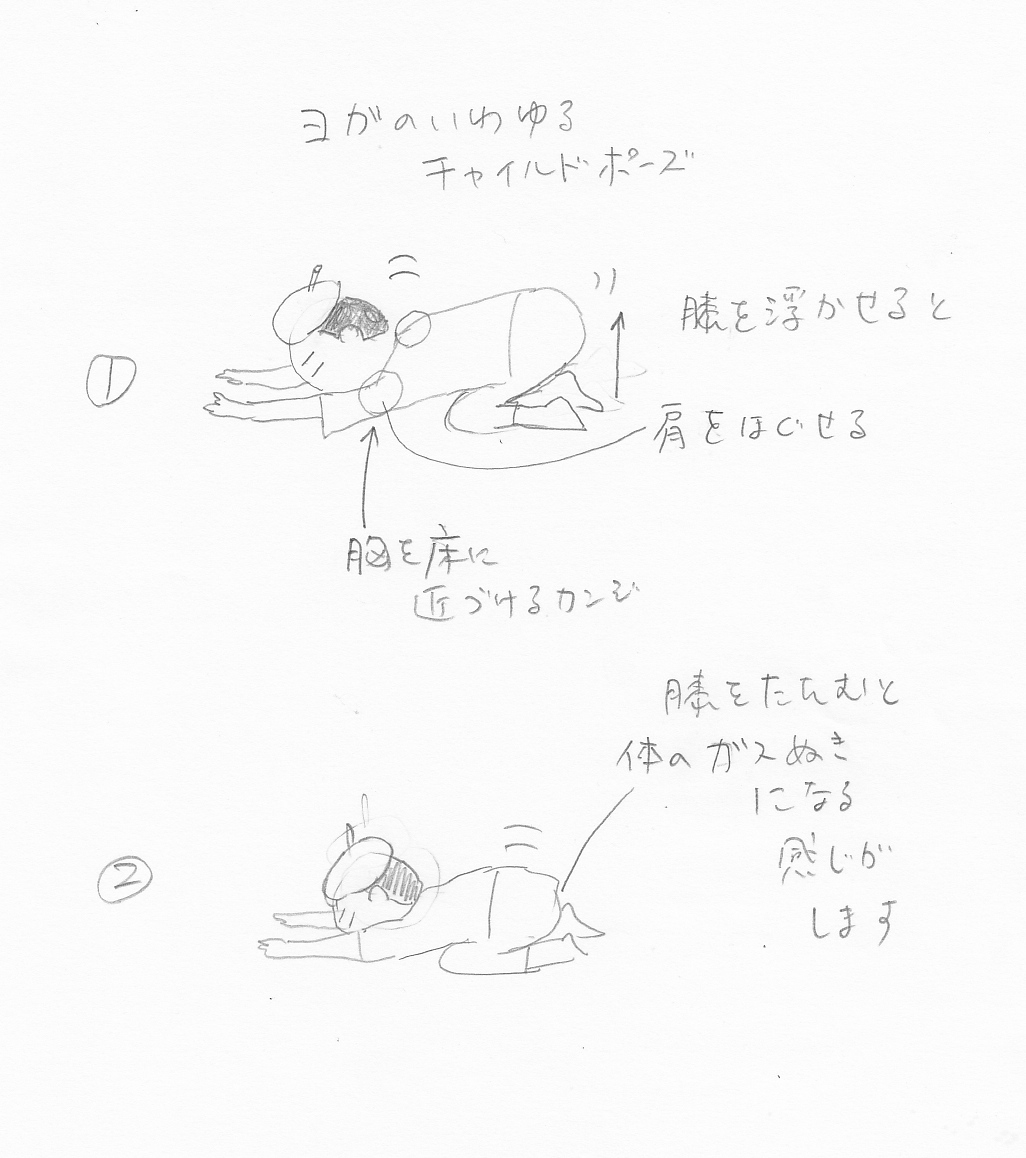 ヨガのいわゆる
チャイルドポーズ
①
膝を浮かせると
肩をほぐせる
胸を床に
近づけるカンジ
②
膝をたたむと
体のガスぬき
になる
感じが
します